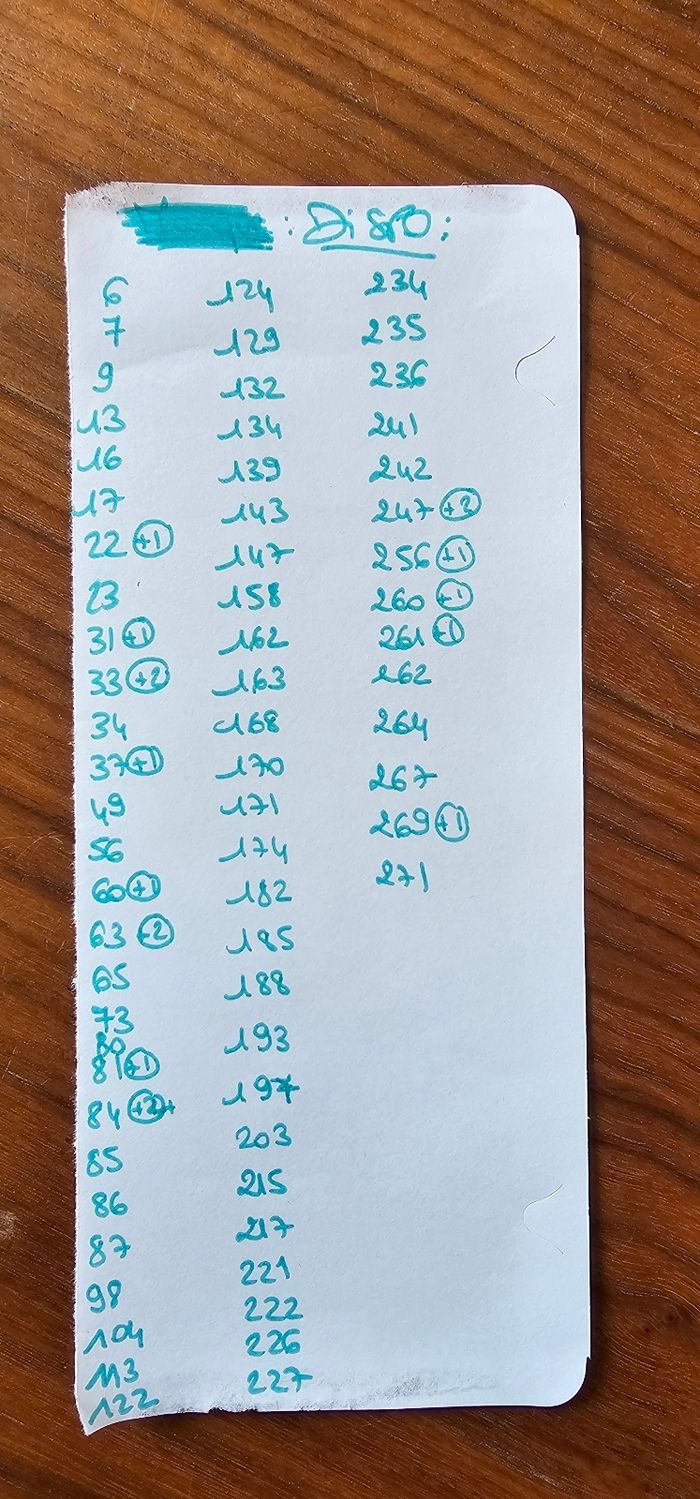 : Dispo :
6
7
9
13
16
17
22 +1
23
31 +1
33 +2
34
37 +1
49
56
60 +1
63 +2
65
73
80
81 +1
84 +2+
85
86
87
98
104
113
122
124
129
132
134
139
143
147
158
162
163
168
170
171
174
182
185
188
193
197
203
215
217
221
222
226
227
234
235
236
241
242
247
256 +1
260 +1
261 +1
262
264
267
269 +1
271